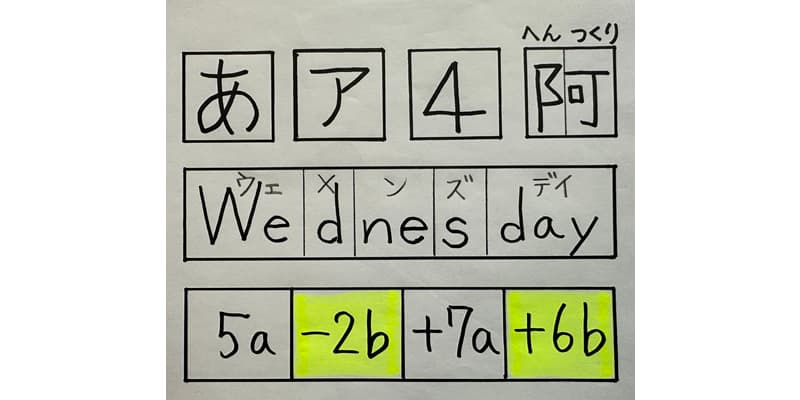 へん つくり
あ ア 4 阿
ウェ × ン ズ デイ
We d ne s day
5a -2b +7a +6b